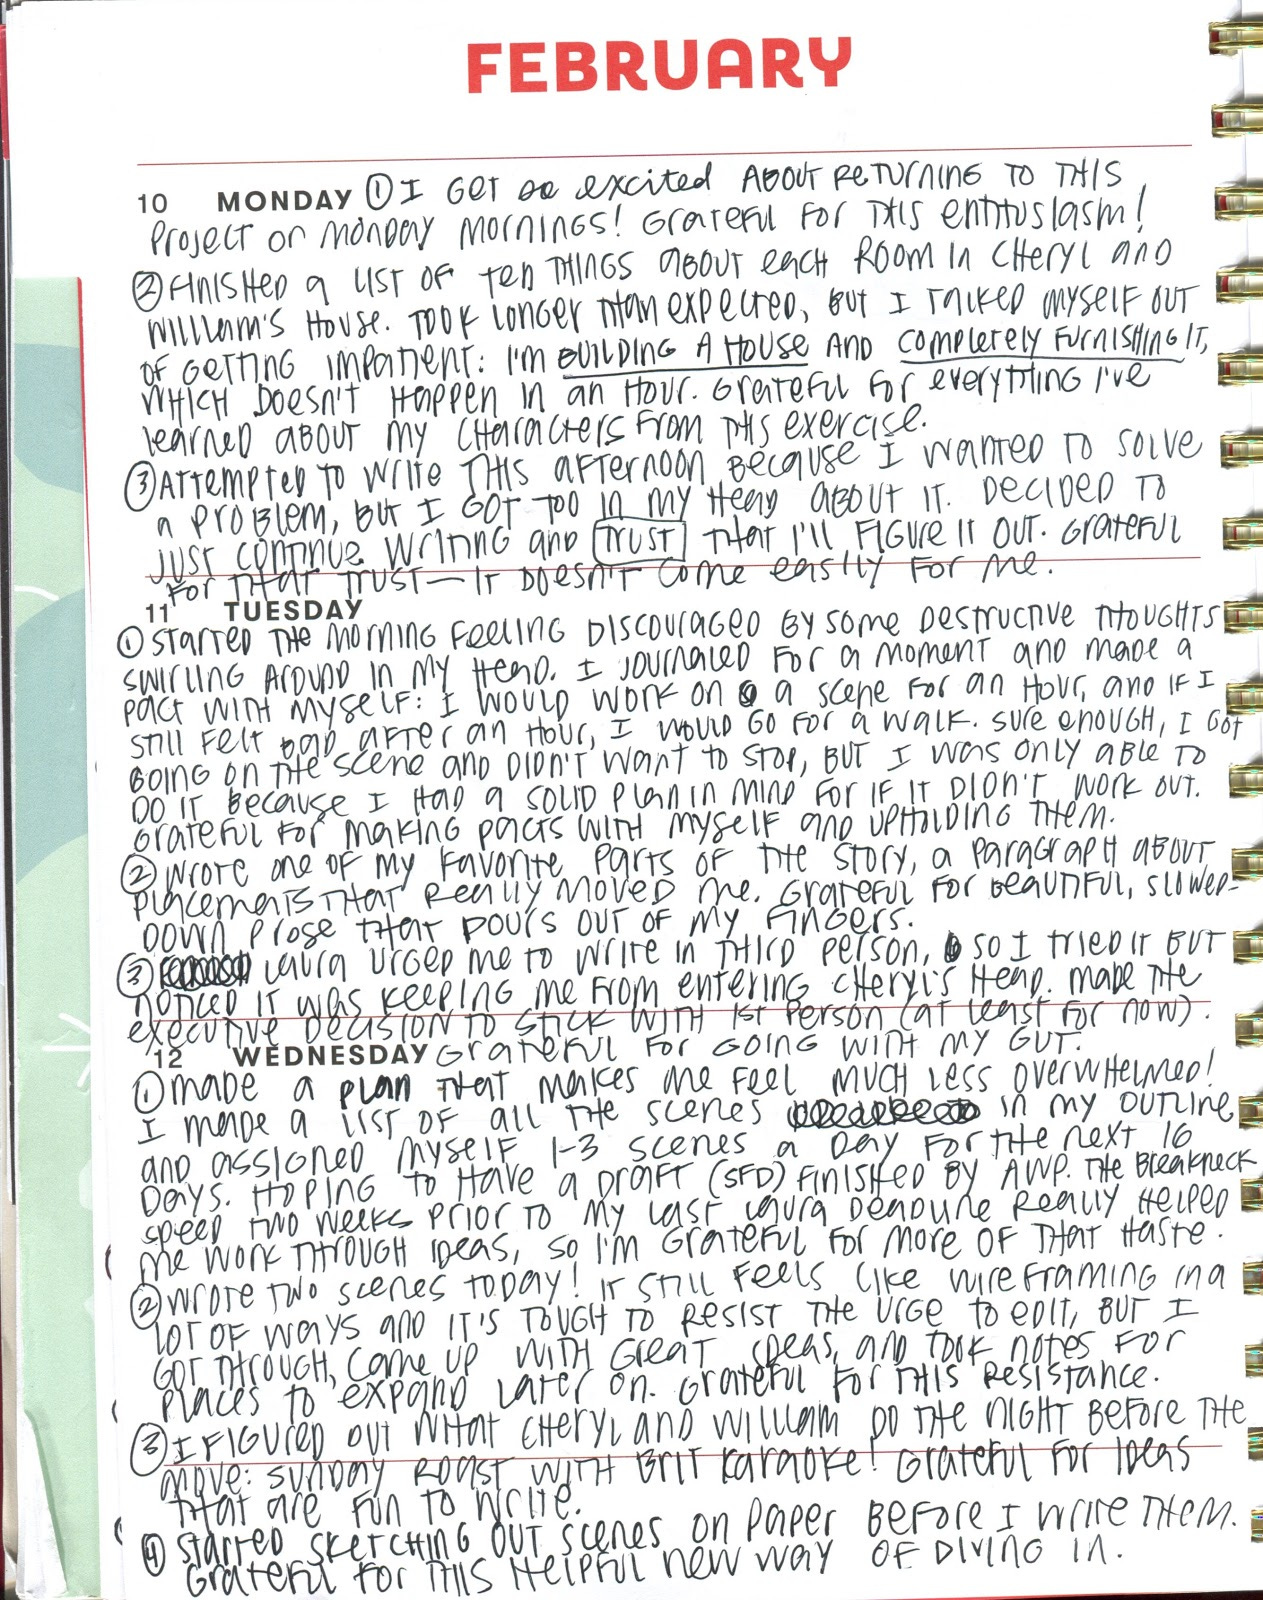 FEBRUARY
10 MONDAY ① I GET so excited ABOUT RETURNING TO THIS
PROJECT on MONDAY MORNINGS! GRATEFUL FOR THIS ENTHUSIASM!
② FINISHED a LIST OF TEN THINGS ABOUT each ROOM IN CHERYL AND
WILLIAM'S HOUSE. TOOK LONGER THAN EXPECTED, BUT I TALKED MYSELF OUT
OF GETTING IMPATIENT: I'M BUILDING A HOUSE AND COMPLETELY FURNISHING IT,
WHICH DOESN'T HAPPEN IN an HOUR. GRATEFUL FOR EVERYTHING I'VE
learned ABOUT MY CHARACTERS FROM THIS exercise.
③ ATTEMPTED TO WRITE THIS AFTERNOON BECAUSE I WANTED TO SOLVE
a PROBLEM, BUT I GOT TOO IN MY HEAD ABOUT IT. DECIDED TO
JUST CONTINUE WRITING and TRUST THAT I'LL FIGURE IT OUT. GRATEFUL
FOR THAT TRUST — IT DOESN'T COME easily FOR me.
11 TUESDAY
① STARTED THE MORNING FEELING DISCOURAGED BY SOME DESTRUCTIVE THOUGHTS
SWIRLING AROUND IN MY HEAD. I JOURNALED FOR a MOMENT and MADE a
PACT WITH MYSELF: I WOULD WORK ON a SCENE FOR an HOUR, and IF I
STILL FELT BAD AFTER an HOUR, I WOULD GO FOR a WALK. SURE ENOUGH, I GOT
GOING ON THE SCENE and DIDN'T WANT TO STOP, BUT I WAS ONLY ABLE TO
DO IT BECAUSE I HAD a SOLID PLAN IN MIND FOR IF IT DIDN'T WORK OUT.
GRATEFUL FOR MAKING PACTS WITH MYSELF and UPHOLDING THEM.
② WROTE ONE OF MY FAVORITE PARTS OF THE STORY, a PARAGRAPH ABOUT
PLACEMATS THAT REALLY MOVED ME. GRATEFUL FOR BEAUTIFUL, SLOWED-
DOWN PROSE THAT POURS OUT OF MY FINGERS.
③ LAURA URGED ME TO WRITE IN THIRD PERSON, SO I TRIED IT BUT
NOTICED IT WAS KEEPING ME FROM ENTERING CHERYL'S HEAD. MADE THE
EXECUTIVE DECISION TO STICK WITH 1ST PERSON (AT LEAST FOR NOW).
12 WEDNESDAY GRATEFUL FOR GOING WITH MY GUT.
① MADE a PLAN THAT MAKES ME FEEL MUCH LESS OVERWHELMED!
I MADE a LIST OF ALL THE SCENES IN MY OUTLINE
AND ASSIGNED MYSELF 1-3 SCENES a DAY FOR THE NEXT 16
DAYS. HOPING TO HAVE a DRAFT (SFD) FINISHED BY AWP. THE BREAKNECK
SPEED TWO WEEKS PRIOR TO MY LAST LAURA DEADLINE REALLY HELPED
ME WORK THROUGH IDEAS, SO I'M GRATEFUL FOR MORE OF THAT HASTE.
② WROTE TWO SCENES TODAY! IT STILL FEELS LIKE WIREFRAMING IN a
LOT OF WAYS AND IT'S TOUGH TO RESIST THE URGE TO EDIT, BUT I
GOT THROUGH, CAME UP WITH GREAT IDEAS, AND TOOK NOTES FOR
PLACES TO EXPAND LATER ON. GRATEFUL FOR THIS RESISTANCE.
③ I FIGURED OUT WHAT CHERYL AND WILLIAM DO THE NIGHT BEFORE THE
MOVE: SUNDAY ROAST WITH BRIT KARAOKE! GRATEFUL FOR IDEAS
THAT ARE FUN TO WRITE.
④ STARTED SKETCHING OUT SCENES ON PAPER BEFORE I WRITE THEM.
GRATEFUL FOR THIS HELPFUL NEW WAY OF DIVING IN.